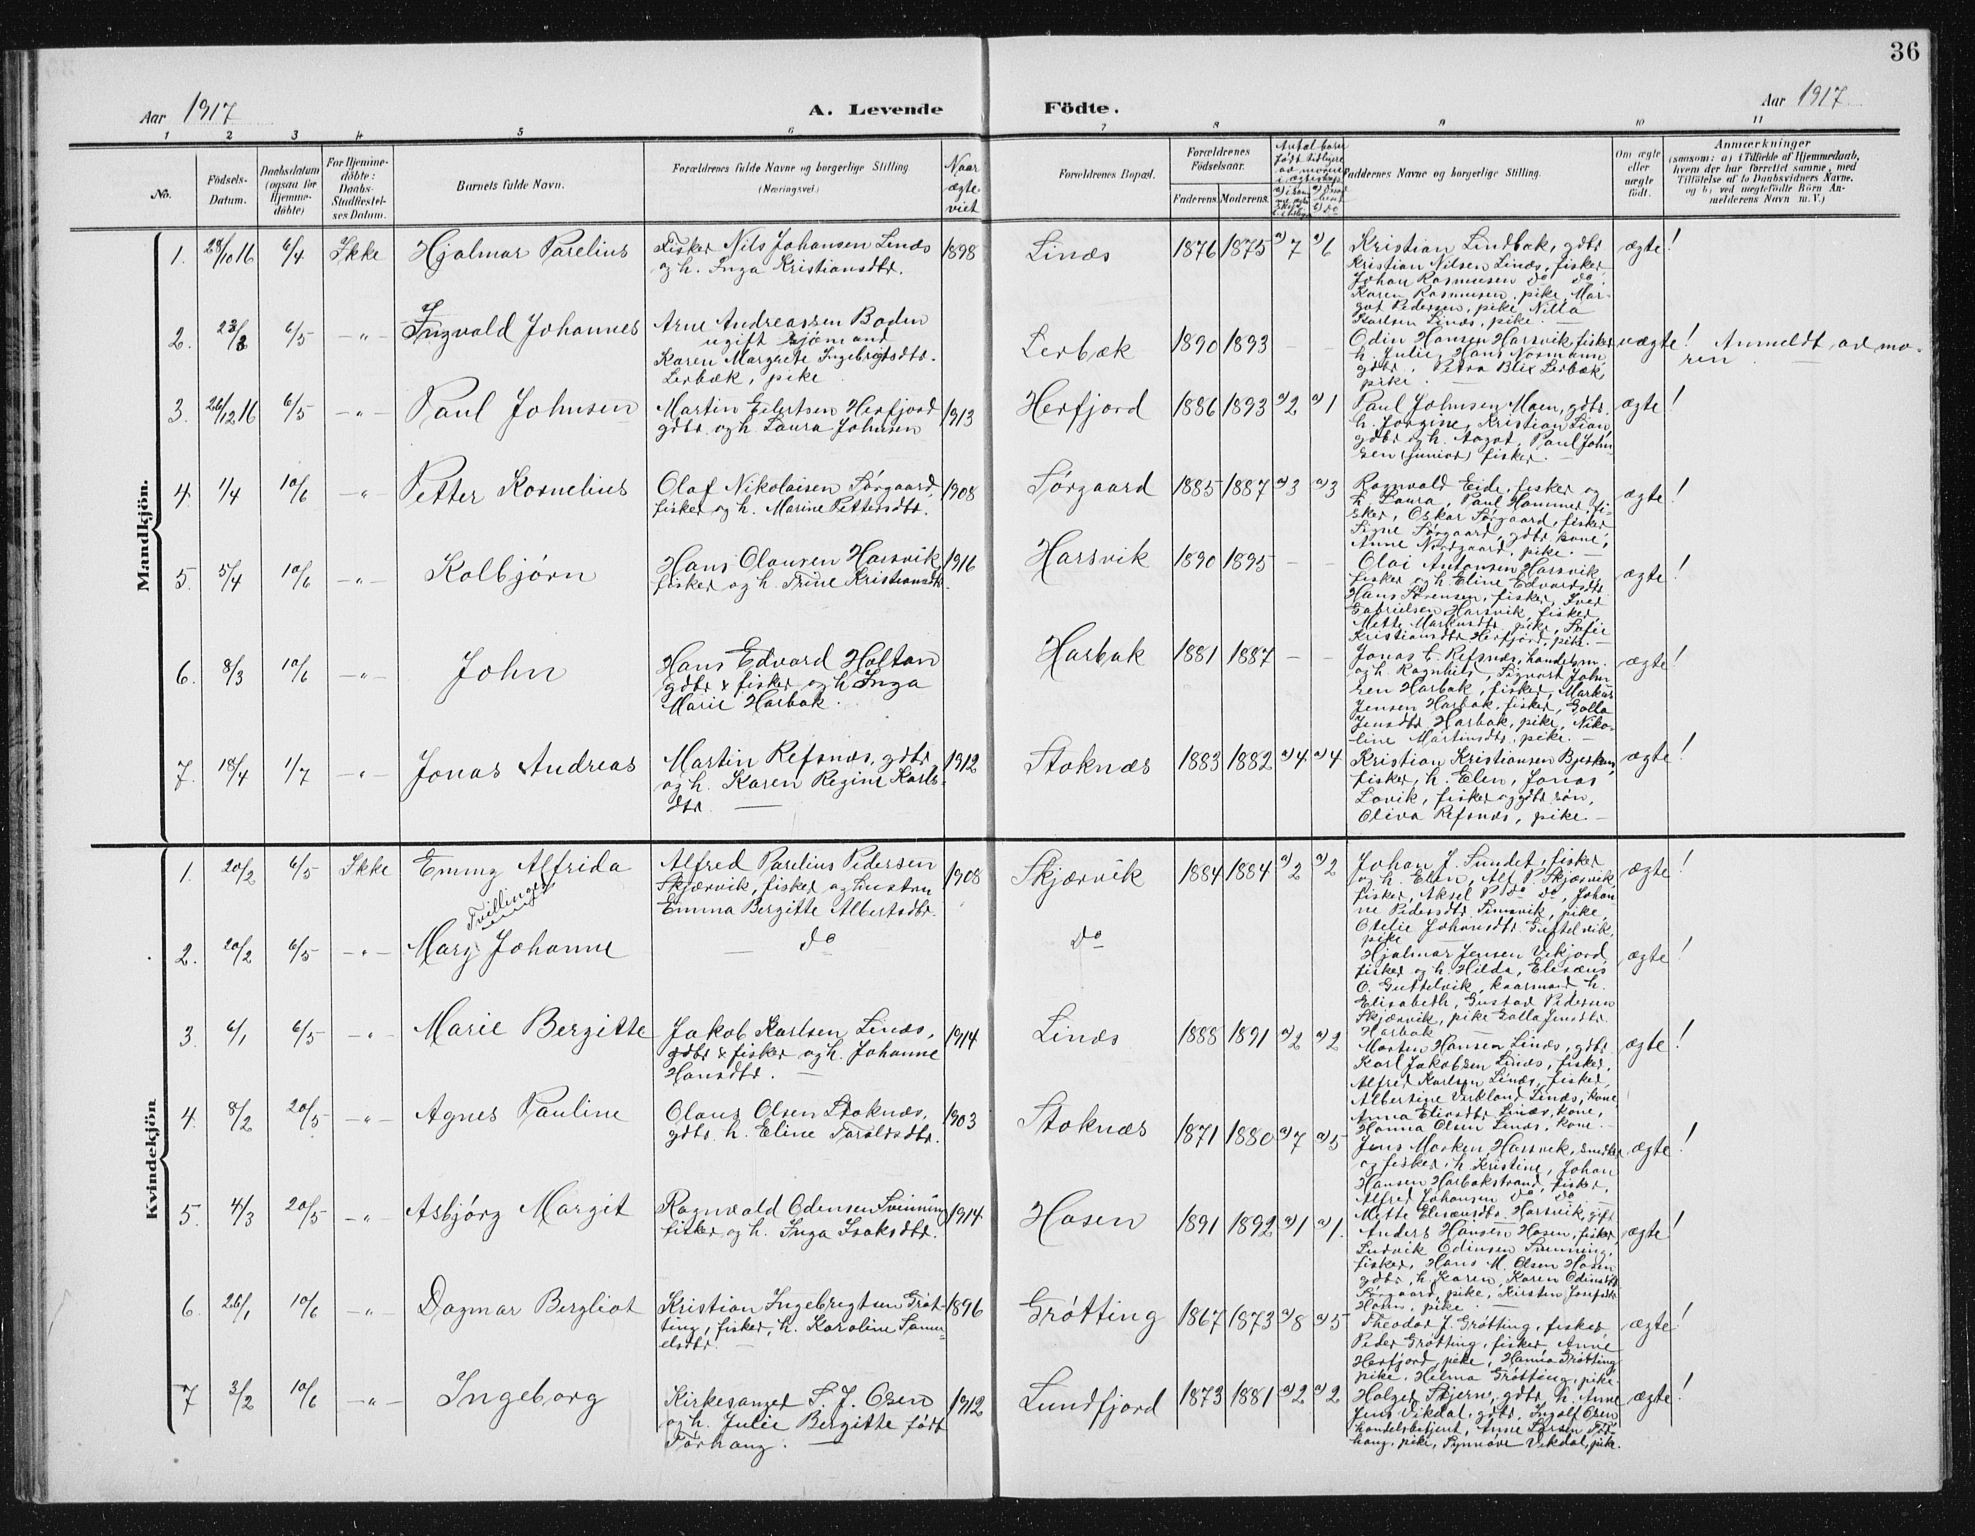 36
Aar 1917
A. Levende Födte.
Aar 1917
1 2 3 4 5 6 7 8 9 10 11
No.
Födsels-Datum.
Daabsdatum (ogsaa for Hjemmedöbte)
For Hjemmedöbte: Daabs-Stadfestelses Datum.
Barnets fulde Navn.
Forældrenes fulde Navne og borgerlige Stilling (Næringsvei.)
Naar ægteviet
Forældrenes Bopæl.
Forældrenes Födselsaar.
Faderens. Moderens.
Faddernes Navne og borgerlig Stilling.
Om ægte eller uægte født.
Anmærkninger
(saasom: a) i Tilfælde af Hjemmedaab, hvem der har forrettet samme, med Tilföielse af to Daabsvidners Navne, og b) ved uægtefödte Börn Anmelderens Navn m. V.)
Mandkjön.
1. 28/10 16 6/4 Ikke Hjalmar Parelius
Fisker Nils Johansen Linæs
og h. Inga Kristiansdtr.
1898 Linæs 1876 1875 a) 7 a) 6
Kristian Lindbak, gdbr.
Kristian Nilsen Linæs, fisker
Johan Rasmussen do do.
Karen Rasmussen, pike, Mar-
got Pedersen, pike, Nilla
Karlsen Linæs, pike.
ægte!
2. 23/3 6/5 -"- Ingvald Johannes
Arne Andreassen Boden
ugift sjømand
Karen Margrete Ingebrigtsdtr.
Lerbæk, pike
Lerbæk 1890 1893 - -
Odin Hansen Harsvik, fisker
h. Julie, Hans Normann,
gdbr., Petra Blix Lerbæk,
pike.
uægte! Anmeldt av mo-
ren
3. 26/12 16 6/5 -"- Paul Johnsen
Martin Eilertsen Herfjord
gdbr. og h. Laura Johnsen
1913 Herfjord 1886 1893 a) 2 a) 1
Paul Johnsen Moen, gdbr.
h. Jørgine, Kristian Lian,
gdbr. og h. Aagot, Paul John-
sen (junior) fisker.
ægte!
4. 1/4 10/6 -"- Petter Kornelius
Olaf Nikolaisen Sørgaard,
fisker og h. Marine Pettersdtr.
1908 Sørgaard 1885 1887 a) 3 a) 3
Ragnvald Eide, fisker og
h. Laura, Paul Hammer, fi-
sker, Oskar Sørgaard, fisker
Signe Sørgaard, gdbr. kone,
Anne Nordgaard, pike.
ægte!
5. 5/4 10/6 -"- Kolbjørn
Hans Olausen Harsvik,
fisker og h. Trine Kristiansdtr.
1916 Harsvik 1890 1895 - -
Olai Antonsen Harsvik
fisker og h. Eline Edvardsdtr.
Hans Sørensen, fisker, Iver
Gabrielsen Harsvik, fisker
Mette Markusdtr. pike, Sofie
Kristiansdtr. Herfjord, pike.
ægte!
6. 8/3 10/6 -"- John
Hans Edvard Holtan
gdbr & fisker og h. Inga
Marie Harbak.
Harbak 1881 1887 - -
Jonas C. Refsnæs, handelsm.
og h. Ragnhild, Sigvart John-
sen Harbak, fisker, Markus
Jensen Harbak, fisker, Golla
Jensdtr. Harbak, pike, Niko-
line Martinsdtr. pike.
ægte!
7. 18/4 1/7 -"- Jonas Andreas
Martin Refsnæs, gdbr.
og h. Karen Regine Karls-
dtr.
1912 Stoknæs 1883 1882 a) 4 a) 4
Kristian Kristiansen
fisker, h. Elen, Jonas
Lavik, fisker og gdbr. søn,
Oliva Refsnæs, pike.
ægte!
Kvindekjön
1. 20/2 6/5 Ikke Emmy Alfrida
Tvillinger
Alfred Parelius Pedersen
Skjærvik, fisker og hustru
Emma Bergitte Albertsdtr.
1908 Skjærvik 1884 1884 a) 2 a) 2
Johan J. Sundet, fisker
og h. Elen, Alf P. Skjærvik
fisker, Aksel P. do do, Johan-
ne Pedersdtr. pike,
Otelie Johansdtr. Guttelvik,
pike
ægte!
2. 20/2 6/5 -"- Mary Johanne
do do
Hjalmar Jensen Vikjord
fisker og h. Hilda, Elisæus
O. Guttelvik, kaarmand h.
Elisabeth, Gustav Pedersen
Skjærvik, pike Golla Jensdtr.
Harbak
ægte!
3. 6/1 6/5 -"- Marie Bergitte
Jakob Karlsen Linæs,
gdbr & fisker og h. Johanne
Hansdtr.
1914 Linæs 1888 1891 a) 2 a) 2
Morten Hansen Linæs, gdbr.
Karl Jakobsen Linæs, fisker,
Alfred Karlsen Linæs, fisker,
Albertine Virkland Linæs, kone,
Anna Eliasdtr. Linæs, kone,
Hanna Olsen Linæs, kone.
ægte!
4. 8/2 20/5 -"- Agnes Pauline
Olaus Olsen Stoknæs,
gdbr. h. Eline Taraldsdtr.
1903 Stoknæs 1871 1880 a) 7 a) 5
Jens Morken Harsvik, snedker
og fisker, h. Kristine, Johan
Hansen Harbakstrand, fisker,
Alfred Johansen do do
Mette Elisæusdtr. Harsvik, gift
ægte!
5. 4/3 20/5 -"- Asbjørg Margit
Ragnvald Odinsen Svenning
fisker og h. Inga Isaksdtr.
1914 Hosen 1891 1892 a) 1 a) 1.
Anders Hansen Hosen, fisker,
Ludvik Odinsen Svenning,
fisker, Hans M. Olsen Hosen
gdbr., h. Karen, Karen Odinsdtr.
Sørgaard, pike, Kirsten Josefsdtr.
Hosen, pike.
ægte!
6. 26/1 10/6 -"- Dagmar Bergliot
Kristian Ingebrigtsen Grøt-
ting, fisker, h. Karoline Samu-
elsdtr.
1896 Grøtting 1867 1873 a) 8 a) 5
Theodor J. Grøtting, fisker,
Peder Grøtting, fisker Anne
Herfjord, pike, Hanna Grøtting
pike, Helma Grøtting, pike
ægte!
7 3/2 10/6 -"- Ingeborg
Kirkesanger L. J. Osen
og h. Julie Bergitte født
Tørhaug.
1912 Sundfjord 1873 1881 a) 2 a) 2
Holger Stjern, gdbr. h. Anne
Jens Vikdal, gdbr. Ingolf Osen
handelsbetjent, Anne Larsen Tør-
haug, pike, Synnøve Vikdal, pike.
ægte!